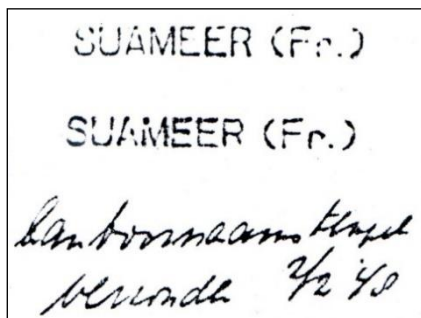 SUAMEER (Fr.)
SUAMEER (Fr.)
kantoornaamstempel
verzonden 2/2 48